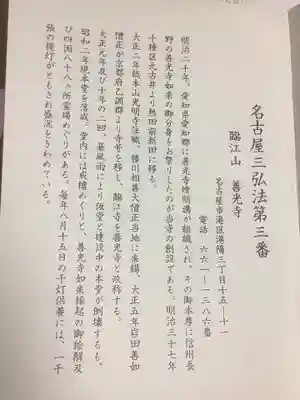 名古屋三弘法第三番
臨江山　善光寺
名古屋市港区港陽三丁目十五ー十一
電話　六六一ー一三八六番
明治二十年、愛知県愛知郡に善光寺燈明講が組織され、その御本尊に信州長
野の善光寺如来の御分身をお祭りしたのが当寺の創設である。明治三十七年
十種区元古井より熱田前新田に移る。
大正二年総本山光明寺証職、勝川相善大僧正当地に来錫、大正五年岩田善如
僧正が京都府乙訓郡より寺号を移し、臨江寺を善光寺と改称する。
大正元年及び十年の二回、暴風雨により仮堂と建設中の本堂が倒壊するも、
昭和二年現本堂を落成。堂内には戒壇めぐりと、善光寺如来縁起の御絵解及
び四国八十八ヶ所霊場めぐりがある。毎年八月十五日の千灯供養には、一千
張の提灯がともされ盛況をきわめている。